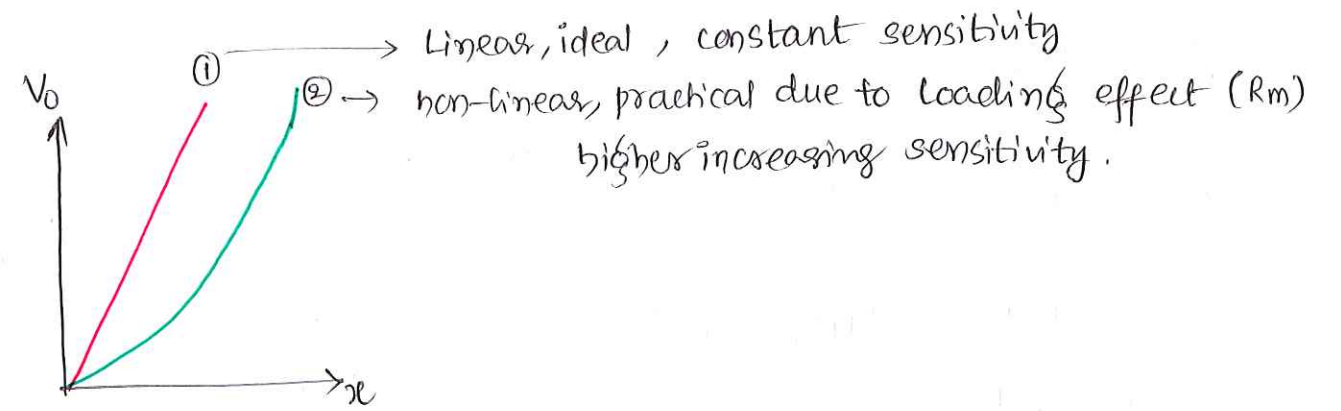 ① → Linear, ideal, constant sensitivity
V₀
② → non-linear, practical due to loading effect (Rm)
higher increasing sensitivity.
x